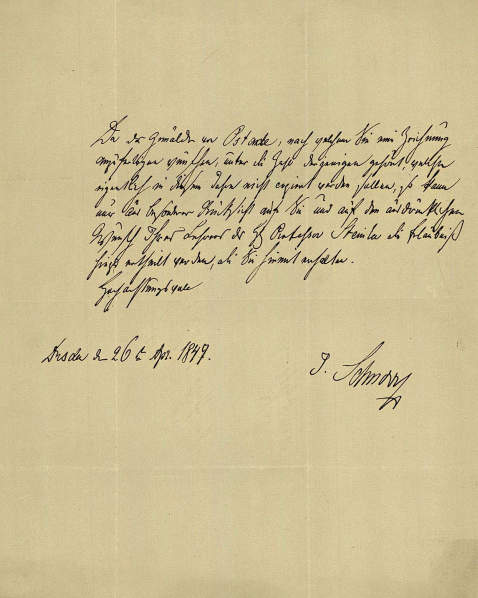 Da das Gemälde von Ostade, nach welchem Sie eine Zeichnung
anzufertigen wünschen, unter die Zahl derjenigen gehört, welche
eigentlich in diesem Jahre nicht copirt werden sollen, so kann
nur aus besonderer Rücksicht auf Sie und auf den ausdrücklichen
Wunsch Ihres Lehrers des H Professor Steinla die Erlaubniß
hiezu ertheilt werden, die Sie hiermit erhalten.
Hochachtungsvoll
Dresden den 26 t Apr. 1849.
J. Schnorr